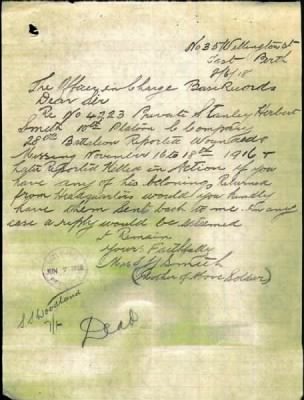 No 35 Wellington St
East Perth
2/6/18
The Officer in Charge Base Records
Dear Sir
Re No 4223 Private Stanley Herbert
Smith 10th Platoon C Company
28th Battalion Reported Wounded &
Missing November 16 to 18th 1916 &
Later Reported Killed in Action if you
have any of his belonings Returned
from Headquarters would you kindly
have them sent back to me. in any
case a reply would be esteemed
I Remain
Yours Faithfully
Mrs Smith
(Mother of Above Soldier)
JUN 7 1918
S.S. Woodland
7/6
Dead